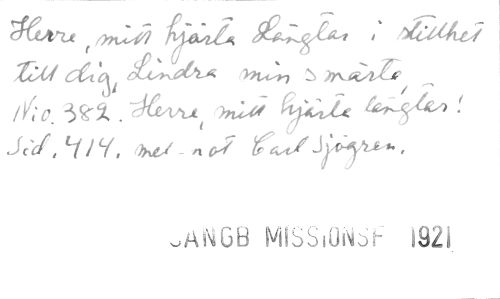 Herre, mitt hjärta Längtar i stillhet
till dig, Lindra min smärta,
No. 382. Herre, mitt hjärta längtar!
Sid. 414. mel-not Carl Sjögren.
SANGB MISSIONSF 1921